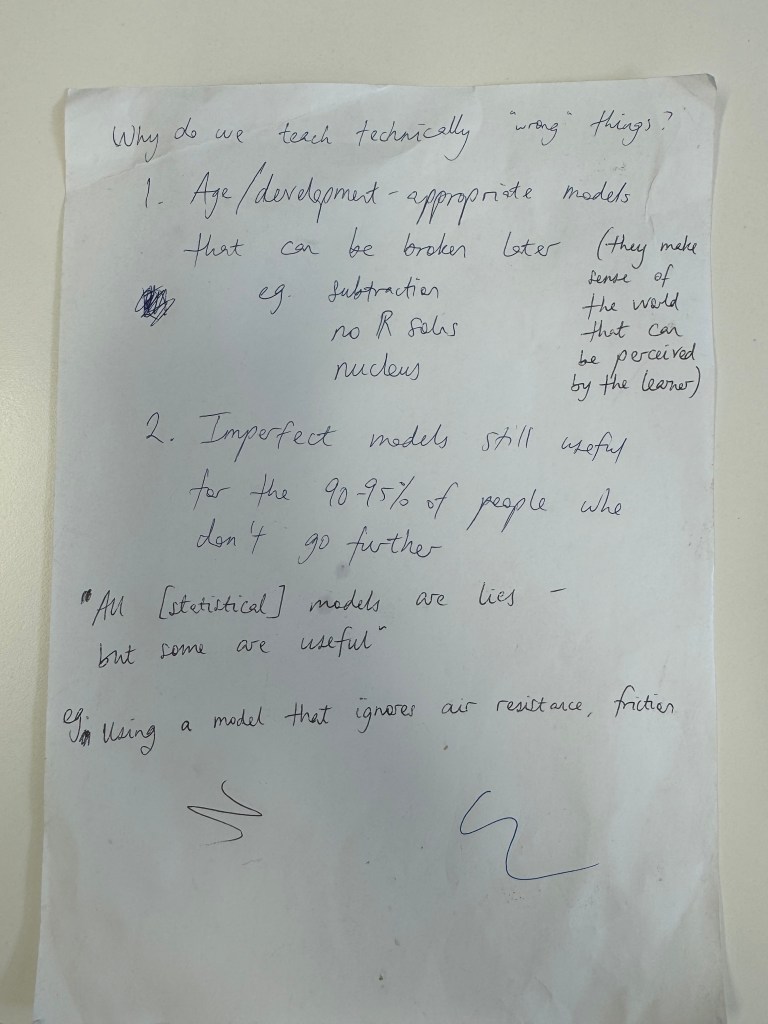 Why do we teach technically "wrong" things?
1. Age/development-appropriate models
that can be broken later
eg. subtraction
no ℝ solns
nucleus
(they make
sense of
the world
that can
be perceived
by the learner)
2. Imperfect models still useful
for the 90-95% of people who
don't go further
"All [statistical] models are lies -
but some are useful"
eg. Using a model that ignores air resistance, friction